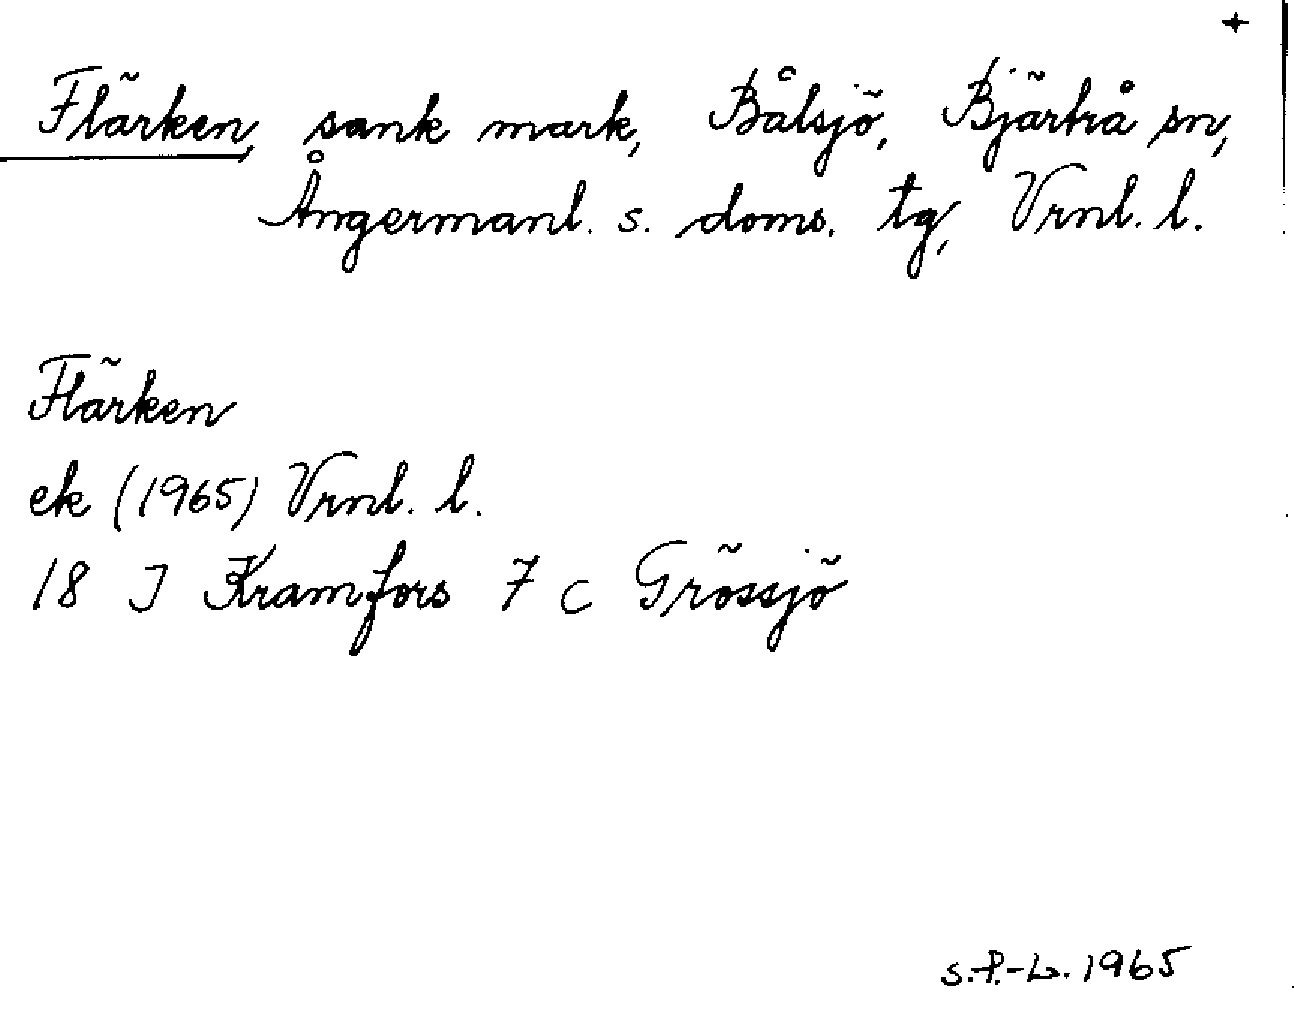 Flärken, sank mark, Bålsjö, Bjärtrå sn,
Ångermanl. s. doms. tg, Vrnl. l.
Flärken
ek (1965) Vrnl. l.
18 J Kramfors 7 c Grössjö
S.P.-L. 1965